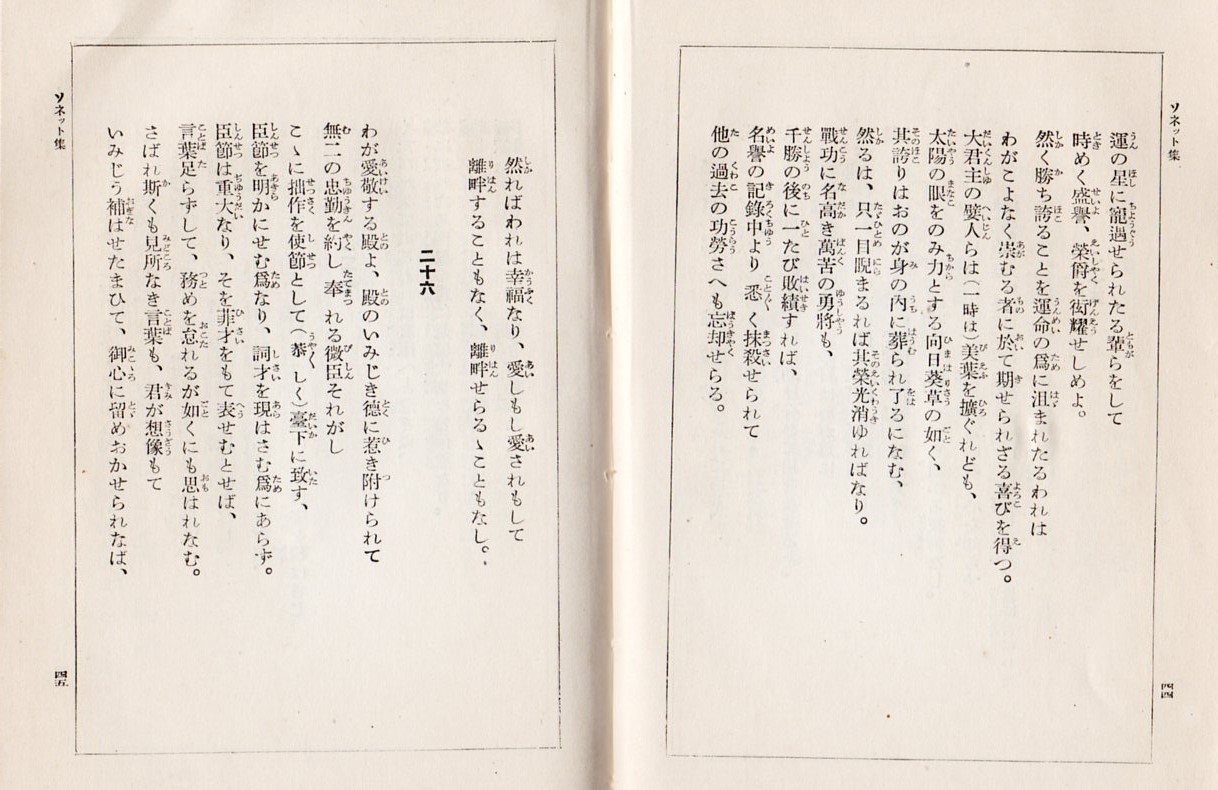 ソネット集
運の星に寵遇せられたる輩らをして
時めく盛譽、榮爵を衒耀せしめよ。
然く勝ち誇ることを運命の爲に沮まれたるわれは
わがこよなく崇むる者に於て期せられざる喜びを得つ。
大君主の嬖人らは(一時は)美葉を擴ぐれども、
太陽の眼をのみ力とする向日葵草の如く、
其誇りはおのが身の内に葬られ了るになむ、
然るは、只一目睨まるれば其榮光消ゆればなり。
戰功に名高き萬苦の勇將も、
千勝の後に一たび敗績すれば、
名譽の記錄中より悉く抹殺せられて
他の過去の功勞さへも忘却せらる。
四四
然ればわれは幸福なり、愛しもし愛されもして
離畔することもなく、離畔せらるゝこともなし。
二十六
わが愛敬する殿よ、殿のいみじき德に惹き附けられて
無二の忠勤を約し奉れる微臣それがし
こゝに拙作を使節として(恭しく)臺下に致す、
臣節を明かにせむ爲なり、詞才を現はさむ爲にあらず。
臣節は重大なり、そを菲才をもて表せむとせば、
言葉足らずして、務めを怠れるが如くにも思はれなむ。
さばれ斯くも見所なき言葉も、君が想像もて
いみじう補はせたまひて、御心に留めおかせられなば、
ソネット集
四五